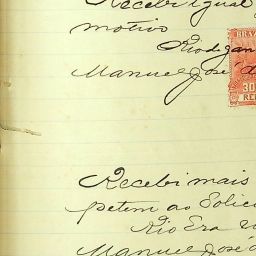 Recebi igual
motivo
Rio de Jan
Manuel José d
BRA
30
RE
Recebi mais
petem ao Solic
Rio Era u
Manuel José d